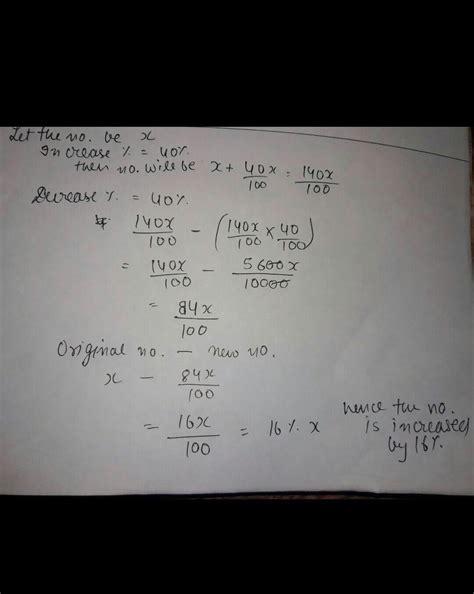 Let the no. be x
Increase % = 40%.
then no. will be x + 40x/100 = 140x/100
Decrease % = 40%.
140x/100 - (140x/100 × 40/100)
= 140x/100 - 5600x/10000
= 84x/100
Original no. — new no.
x - 84x/100
= 16x/100 = 16 % x
hence the no.
is increased
by 16%.